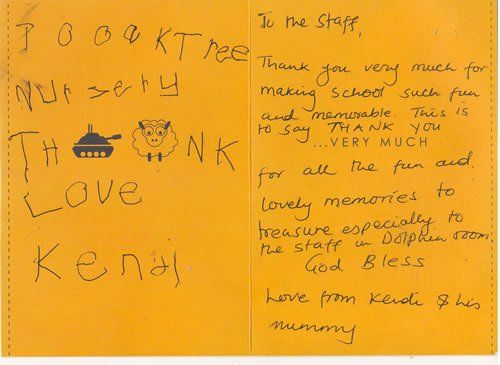 TREE
NUrserY
TH NK
LOVE
Kendi
To the Staff,
Thank you very much for
making school such fun
and memorable. This is
to say THANK YOU
...VERY MUCH
for all the fun and
lovely memories to
treasure especially to
the staff in Dolphin room.
God Bless
Love from Kendi & his
mummy